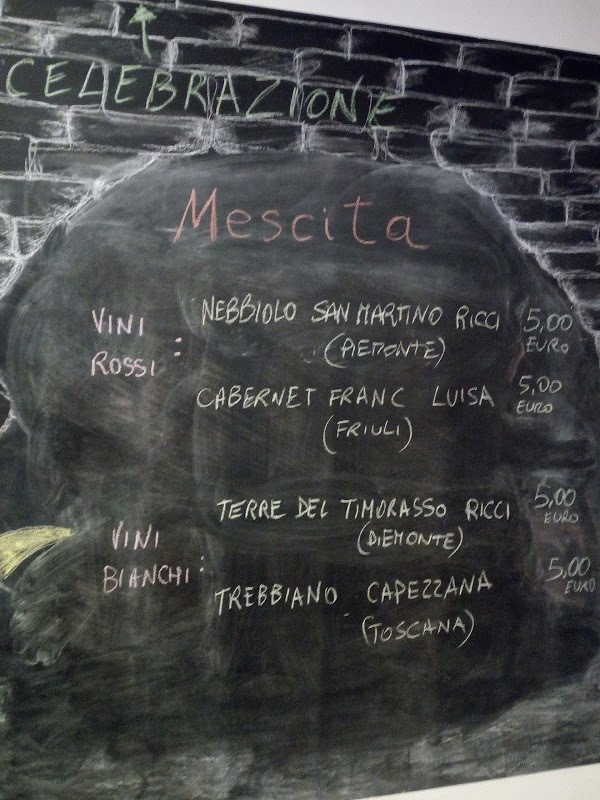 CELEBRAZIONE
Mescita
VINI ROSSI :
NEBBIOLO SAN MARTINO RICCI 5,00 EURO
(PIEMONTE)
CABERNET FRANC LUISA 5,00 EURO
(FRIULI)
VINI BIANCHI :
TERRE DEL TIMORASSO RICCI 5,00 EURO
(PIEMONTE)
TREBBIANO CAPEZZANA 5,00 EURO
(TOSCANA)